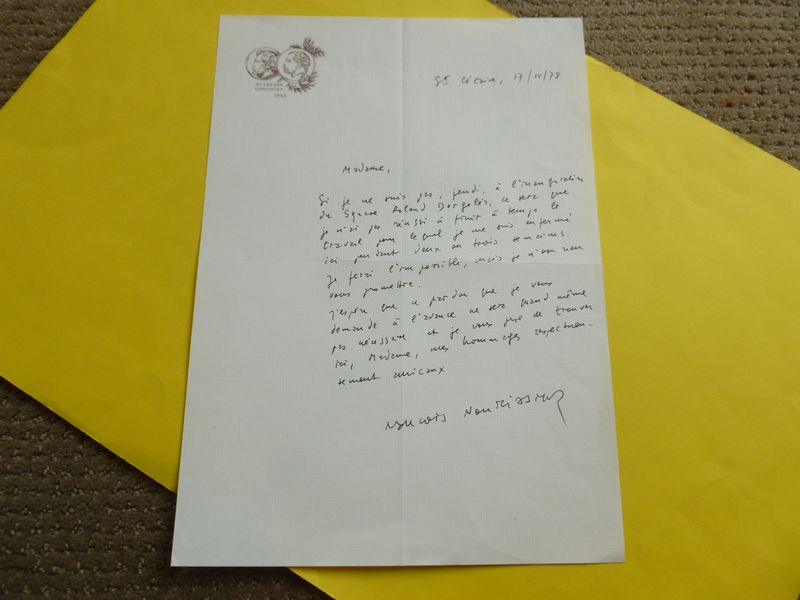 ACADEMIE
GONCOURT
17/IV/78
Madame,
Si je ne suis pas, jeudi, à l'inauguration
du Square Roland Dorgelès, ce sera que
je n'ai pas réussi à finir à temps le
travail pour lequel je me suis enfermé
ici pendant deux ou trois semaines.
Je ferai l'impossible, mais je n'ose rien
vous promettre.
J'espère que ce pardon que je vous
demande à l'avance ne sera quand même
pas nécessaire et je vous prie de trouver
ici, Madame, mes hommages respectueu-
sement amicaux
François Nourissier